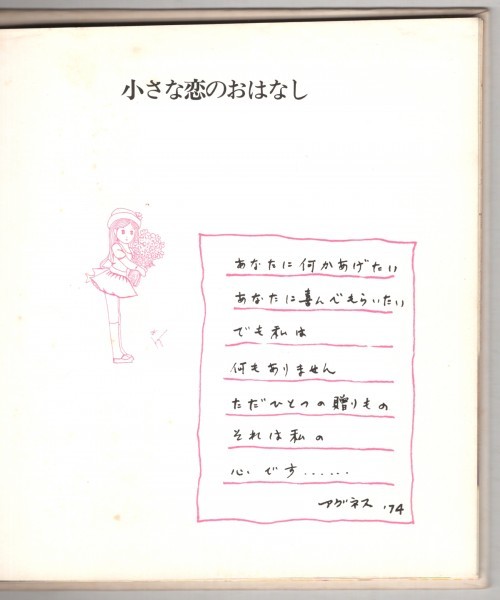 小さな恋のおはなし
あなたに何かあげたい
あなたに喜んでもらいたい
でも私は
何もありません
ただひとつの贈りもの
それは私の
心です……
アグネス '74